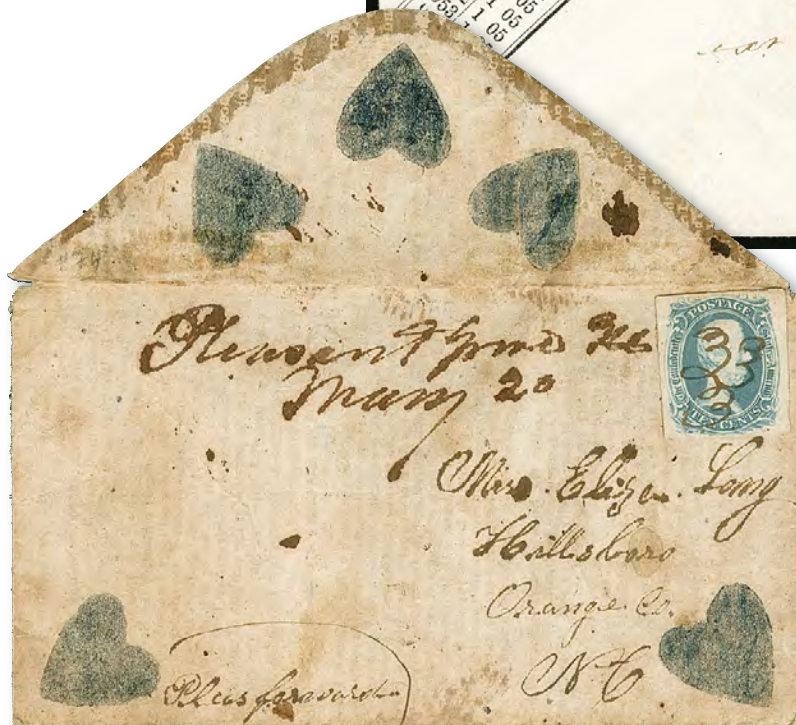 1 05
1 05
Pleasant
20
POSTAGE
TEN CENTS
Miss. Eliza. Long
Hillsboro
Orange Co.
N C
Pleas forward